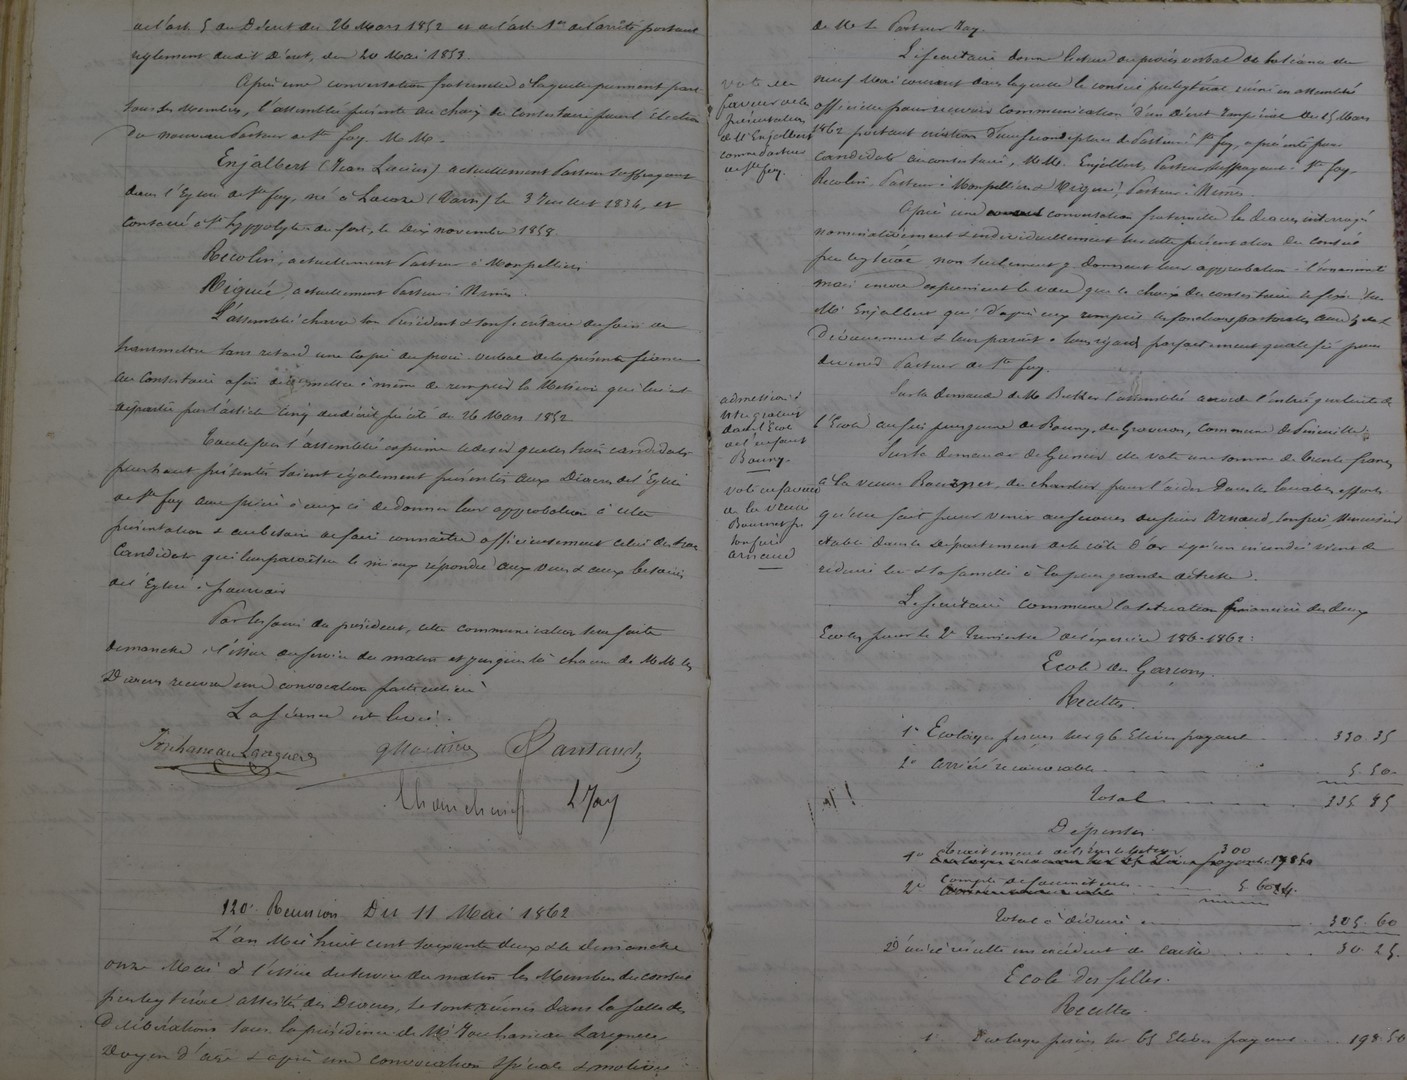 de l'art. 5 du Décret du 26 Mars 1852 et de l'art. 1er de l'arrêté portant
règlement dudit Décret, du 20 Mai 1853.
Après une conversation fraternelle à laquelle prennent part
tous les Membres, l'assemblée présente au choix du consistoire pour l'élection
du nouveau Pasteur de Ste foy, M.M.
Enjalbert (Jean Lucius) actuellement Pasteur suffragant
dans l'Eglise de Ste foy, né à Lacaze (Tarn) le 3 Juillet 1834, et
consacré à St hyppolyte du fort, le Dix novembre 1858
Recolin, actuellement Pasteur à Montpellier
Viguié, actuellement Pasteur à Nîmes.
L'assemblée charge son Président & son Secrétaire du soin de
transmettre sans retard une copie du procès-verbal de la présente séance
au Consistoire afin de le mettre à même de remplir la Mission qui lui est
départie par l'article Cinq du décret précité du 26 Mars 1852
Toutefois l'assemblée exprime le désir que les trois candidats
plus haut présentés soient également présentés aux Diacres de l'Eglise
de Ste foy avec prière à ceux ci de donner leur approbation à cette
présentation & au besoin de faire connaître officieusement celui des trois
Candidats qui leur paraîtra le mieux répondre aux vœux & aux besoins
de l'Eglise à pourvoir
Par les soins du président, cette communication sera faite
dimanche à l'issue du service du matin et jusques là chacun de M.M. les
Diacres recevra une convocation particulière
La séance est levée.
L Jay
120e Reunion Du 11 Mai 1862
L'an Mil huit cent soixante deux & le dimanche
onze Mai à l'issue du service du matin les Membres du conseil
presbytéral assistés des Diacres, se sont réunis dans la salle des
Délibérations sous la présidence de Mr Jouhaneau Laregnere
Doyen d'âge & après une convocation spéciale & motivée
de Mr le Pasteur Jay.
Le Secrétaire donne lecture du procès verbal de la séance du
neuf Mai courant dans laquelle le conseil presbytéral réuni en assemblée
officielle pour recevoir communication d'un Décret Impérial du 15 Mars
1862 portant création d'une seconde place de Pasteur à Ste foy, a présenté pour
candidats au consistoire, M.M. Enjalbert, Pasteur suffragant à Ste foy,
Recolin, Pasteur à Montpellier & Viguié, Pasteur à Nîmes
vote en
faveur de la
présentation
de Mr Enjalbert
comme Pasteur
de Ste foy.
Après une conversation fraternelle les diacres interrogés
nominativement & individuellement sur cette présentation du conseil
presbytéral, non seulement y donnent leur approbation à l'unanimité
mais encore expriment le vœu que le choix du consistoire se fixe sur
Mr Enjalbert qui d'après eux remplit les fonctions pastorales avec zèle &
Dévouement & leur paraît à tous égards parfaitement qualifié pour
devenir Pasteur de Ste foy.
admission à
titre gratuit
dans l'Ecole
de l'enfant
Bouny.
Sur la demande de Mr l'assemblée accorde l'entrée gratuite de
l'Ecole au fils de Bouny, du Graveron, Commune de Pineuilh.
vote en faveur
de la veuve
Bournet pr
son fils
Arnaud
Sur la demande de elle vote une somme de trente francs
à la veuve, du chardier pour l'aider dans les louables efforts
qu'elle fait pour venir au secours du sieur Arnaud, son fils
établi dans le département de la côte d'or & qu'un incendie vient de
réduire lui & sa famille à la plus grande détresse.
Le Secrétaire commune la situation financière des deux
Ecoles pour le 2e Trimestre de l'exercice 186-1862:
Ecole des Garçons.
Recettes.
1o Ecolages perçus sur 96 Elèves payans 330.35
2o Arriéré recouvrable 5.50
Total 335 85
Dépenses
1o Traitement de 300
2o Compte de fournitures 5.60
Total à déduire 305.60
D'où il résulte un excédent de caisse 30.25.
Ecole des filles.
Recettes
1o Ecolages perçus sur 65 Elèves payans 198.50